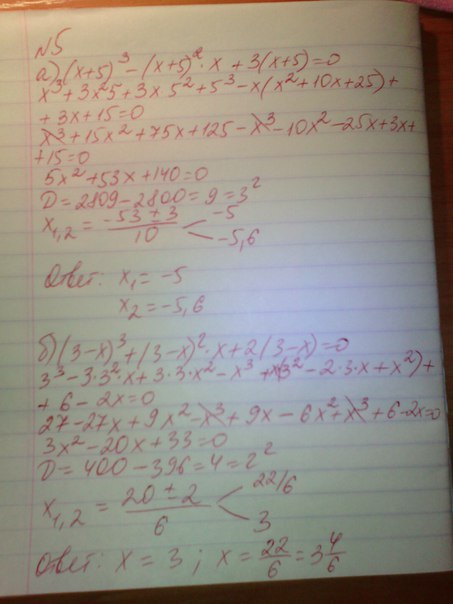 N5
а) (x+5)³ – (x+5)²·x + 3(x+5)=0
x³+3x²5+3x·5²+5³–x(x²+10x+25)+
+3x+15=0
x³+15x²+75x+125–x³–10x²–25x+3x+
+15=0
5x²+53x+140=0
D=2809–2800=9=3²
x₁,₂ = (–53±3)/10 –5
–5,6
Ответ: x₁=–5
x₂=–5,6
б) (3–x)³+(3–x)²·x+2(3–x)=0
3³–3·3²·x+3·3·x²–x³+x(3²–2·3·x+x²)+
+6–2x=0
27–27x+9x²–x³+9x–6x²+x³+6–2x=0
3x²–20x+33=0
D=400–396=4=2²
x₁,₂ = (20±2)/6 22/6
3
Ответ: x=3; x=22/6=3 4/6